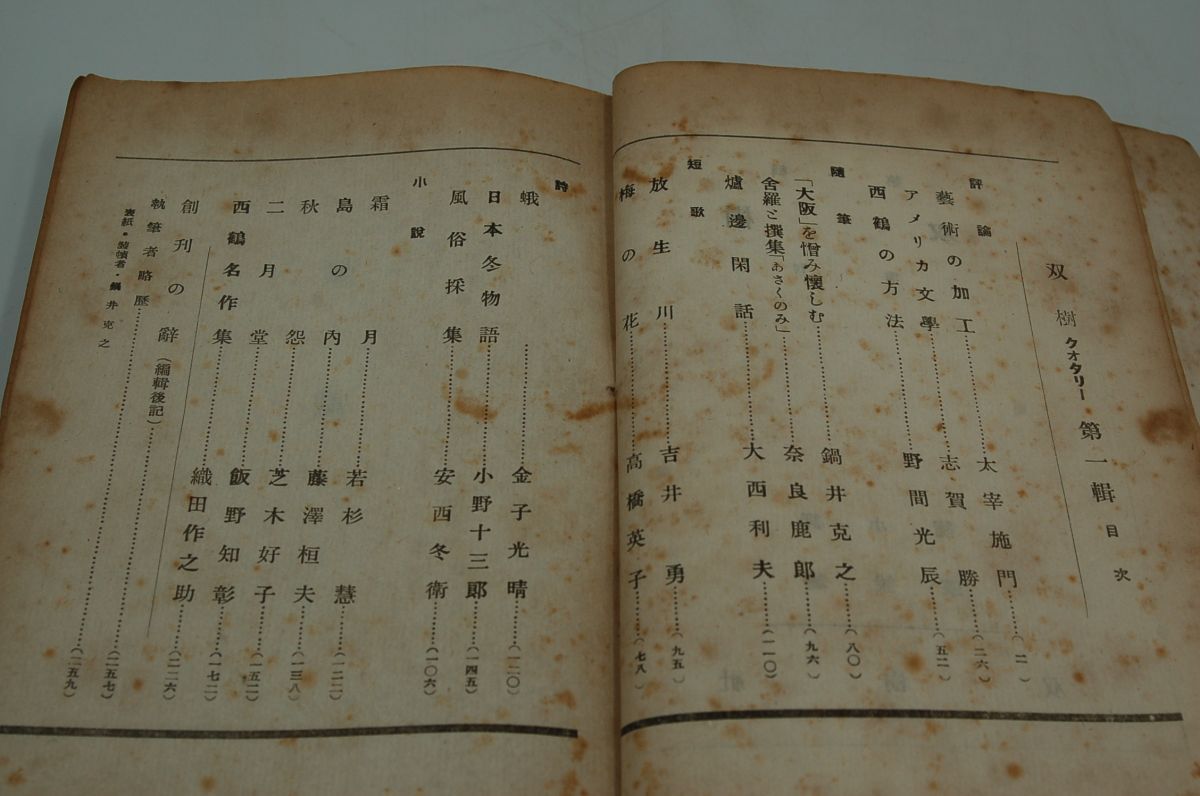 双樹 クォタリー 第一輯 目次
評論
藝術の加工……太宰施門……(二)
アメリカ文學……志賀勝……(二六)
西鶴の方法……野間光辰……(五二)
隨筆
「大阪」を憎み懷しむ……鍋井克之……(八〇)
舍羅と撰集「あさくのみ」……奈良鹿郎……(九六)
爐邊閑話……大西利夫……(一一〇)
短歌
放生川……吉井勇……(九五)
梅の花……高橋英子……(七八)
詩
蛾……金子光晴……(一二〇)
日本冬物語……小野十三郎……(一四五)
風俗採集……安西冬衛……(一〇六)
小說
霜月……若杉慧……(一二二)
島の內……藤澤桓夫……(一三八)
秋怨……芝木好子……(一五二)
二月堂……飯野知彰……(一七二)
西鶴名作集……織田作之助……(二二六)
創刊の辭(編輯後記)……(二五七)
執筆者略歷……(二五九)
表紙・裝幀者・鍋井克之